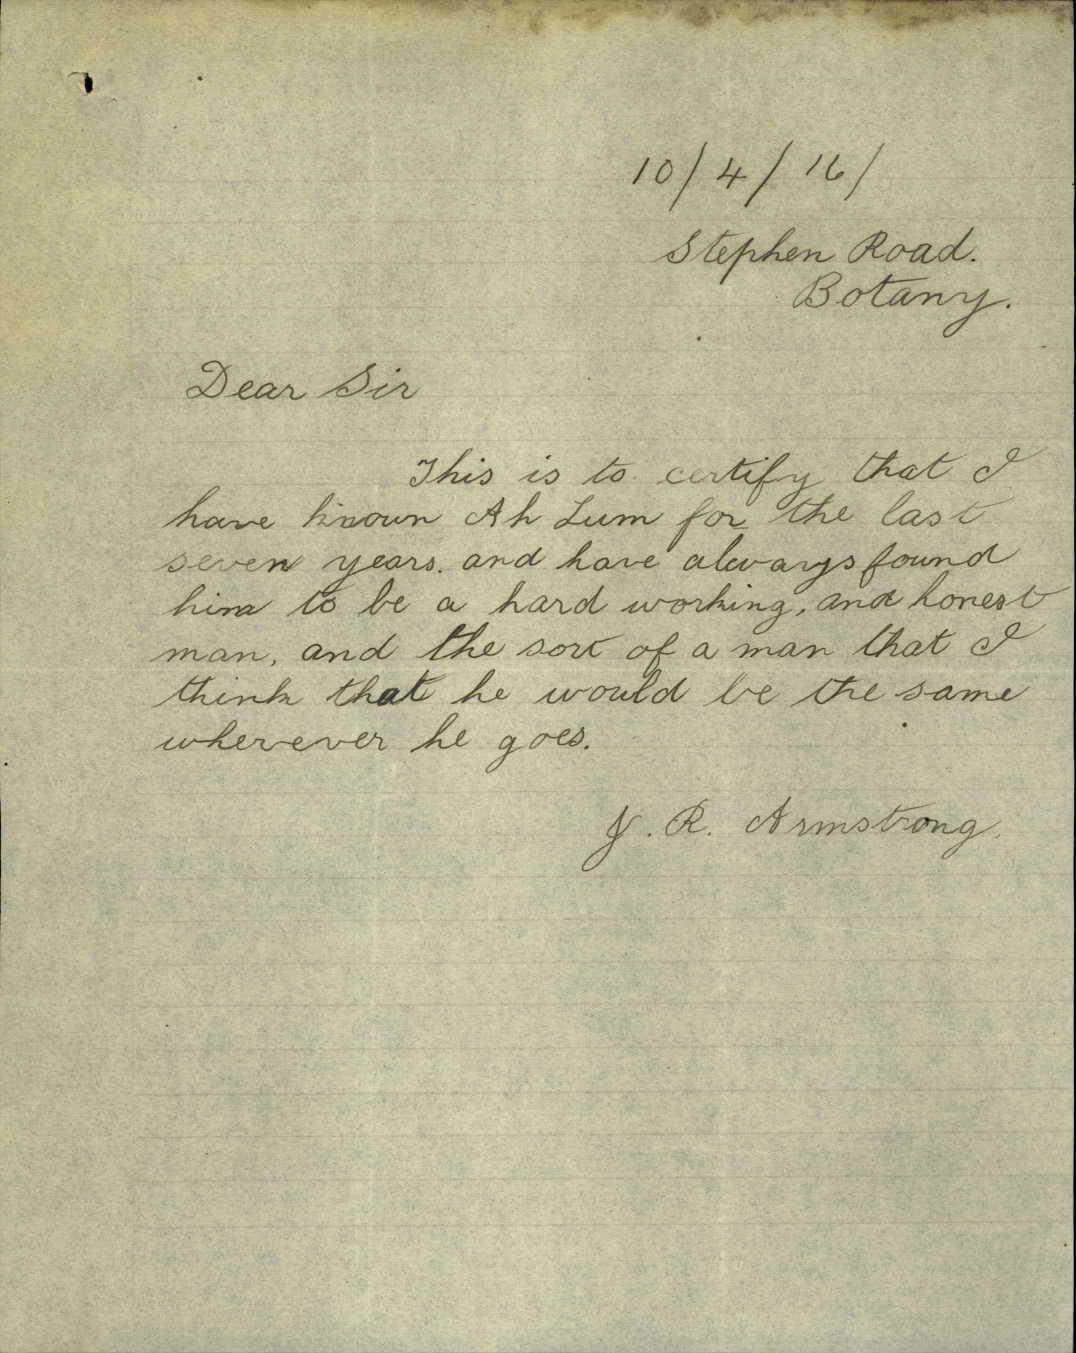 10/4/16/
Stephen Road.
Botany.
Dear Sir
This is to certify that I
have known Ah Lum for the last
seven years. and have always found
him to be a hard working, and honest
man, and the sort of a man that I
think that he would be the same
wherever he goes.
J. R. Armstrong.